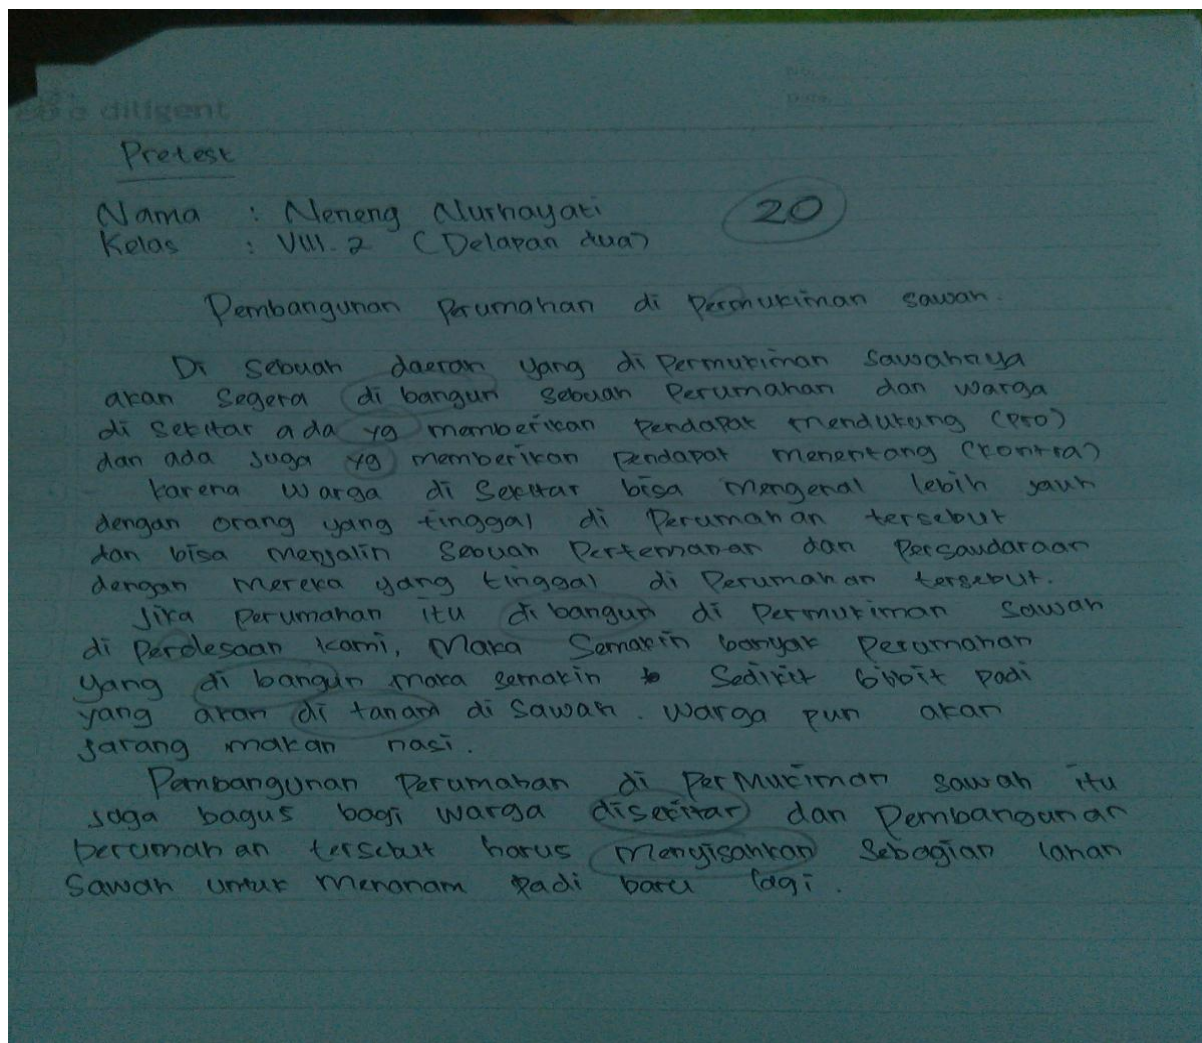 diligent
No.
Date
Pretest
Nama : Neneng Nurhayati
20
Kelas : VIII.2 (Delapan dua)
Pembangunan Perumahan di Permukiman sawah.
Di Sebuah daerah yang di Permukiman Sawahnya
akan Segera di bangun Sebuah Perumahan dan warga
di Sekitar ada yg memberikan Pendapat mendukung (pro)
dan ada juga yg memberikan Pendapat menentang (kontra)
karena warga di Sekitar bisa mengenal lebih jauh
dengan orang yang tinggal di Perumahan tersebut
dan bisa menjalin Sebuah Pertemanan dan Persaudaraan
dengan mereka yang tinggal di Perumahan tersebut.
Jika perumahan itu di bangun di Permukiman sawah
di Perdesaan kami, Maka Semakin banyak Perumahan
yang di bangun maka semakin Sedikit bibit padi
yang akan di tanam di Sawah. warga pun akan
jarang makan nasi.
Pembangunan Perumahan di PerMukiman sawah itu
juga bagus bagi warga disekitar dan Pembangunan
perumahan tersebut harus Menyisahkan Sebagian lahan
Sawah untuk menanam padi baru lagi.